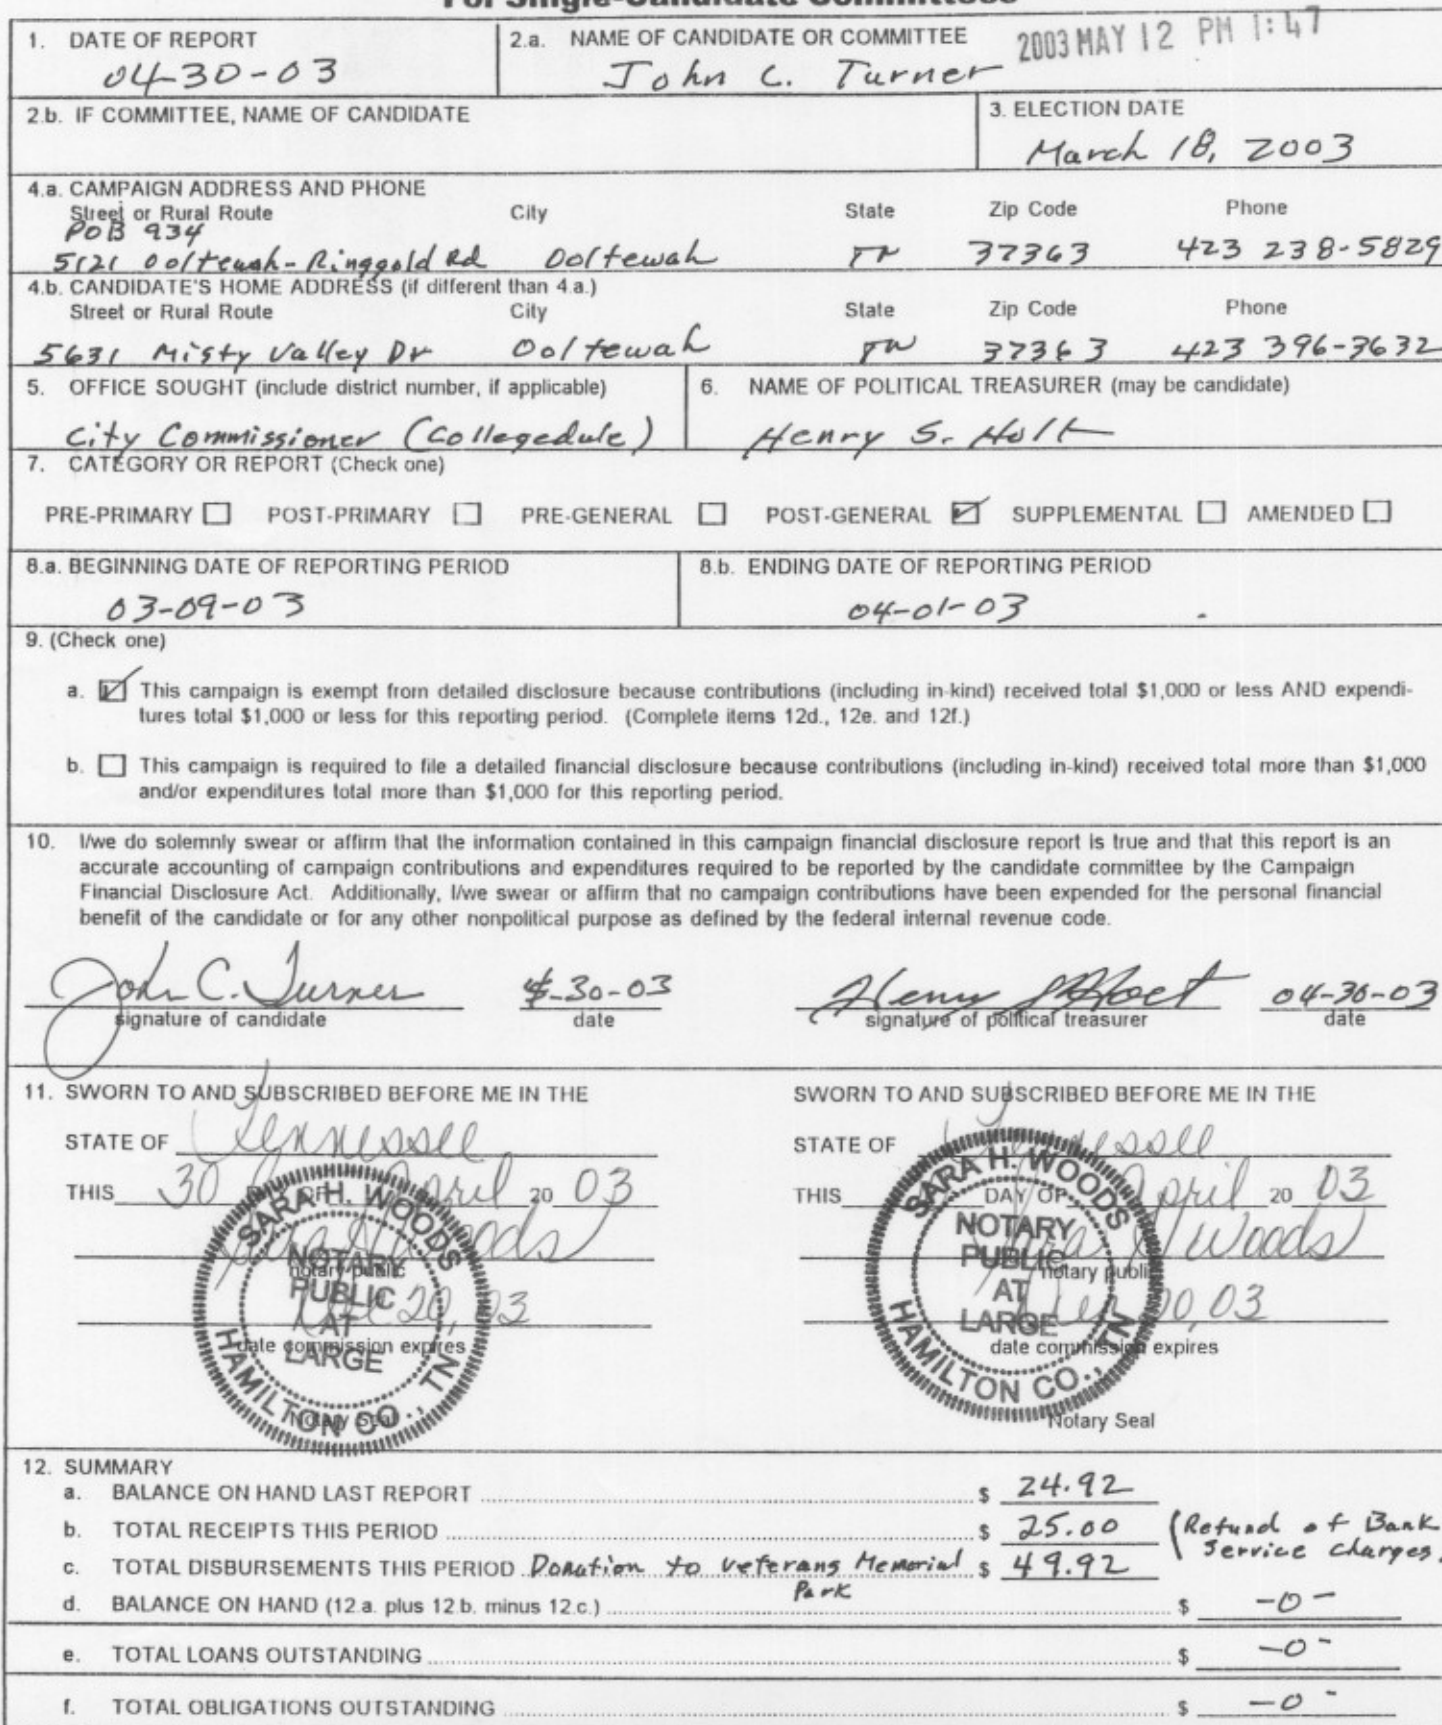 For Single-Candidate Committees
1. DATE OF REPORT
04-30-03
2.a. NAME OF CANDIDATE OR COMMITTEE
John C. Turner
2003 MAY 12 PM 1:47
2.b. IF COMMITTEE, NAME OF CANDIDATE
3. ELECTION DATE
March 18, 2003
4.a. CAMPAIGN ADDRESS AND PHONE
Street or Rural Route City State Zip Code Phone
POB 934
5121 Ooltewah-Ringgold Rd Ooltewah TN 37363 423 238-5829
4.b. CANDIDATE'S HOME ADDRESS (if different than 4.a.)
Street or Rural Route City State Zip Code Phone
5631 Misty Valley Dr Ooltewah TN 37363 423 396-3632
5. OFFICE SOUGHT (include district number, if applicable)
City Commissioner (Collegedule)
6. NAME OF POLITICAL TREASURER (may be candidate)
Henry S. Holt
7. CATEGORY OR REPORT (Check one)
PRE-PRIMARY POST-PRIMARY PRE-GENERAL POST-GENERAL SUPPLEMENTAL AMENDED
8.a. BEGINNING DATE OF REPORTING PERIOD
03-09-03
8.b. ENDING DATE OF REPORTING PERIOD
04-01-03
9. (Check one)
a. This campaign is exempt from detailed disclosure because contributions (including in-kind) received total $1,000 or less AND expendi-
tures total $1,000 or less for this reporting period. (Complete items 12d., 12e. and 12f.)
b. This campaign is required to file a detailed financial disclosure because contributions (including in-kind) received total more than $1,000
and/or expenditures total more than $1,000 for this reporting period.
10. I/we do solemnly swear or affirm that the information contained in this campaign financial disclosure report is true and that this report is an
accurate accounting of campaign contributions and expenditures required to be reported by the candidate committee by the Campaign
Financial Disclosure Act. Additionally, I/we swear or affirm that no campaign contributions have been expended for the personal financial
benefit of the candidate or for any other nonpolitical purpose as defined by the federal internal revenue code.
John C. Turner 4-30-03 Henry S Holt 04-30-03
signature of candidate date signature of political treasurer date
11. SWORN TO AND SUBSCRIBED BEFORE ME IN THE
STATE OF Tennessee
THIS 30 DAY OF April 20 03
Sara H Woods
notary public
20, 03
date commission expires
Notary Seal
SARA H. WOODS
NOTARY
PUBLIC
AT
LARGE
HAMILTON CO., TN
SWORN TO AND SUBSCRIBED BEFORE ME IN THE
STATE OF Tennessee
THIS DAY OF April 20 03
Sara H Woods
notary public
20, 03
date commission expires
Notary Seal
SARA H. WOODS
NOTARY
PUBLIC
AT
LARGE
HAMILTON CO., TN
12. SUMMARY
a. BALANCE ON HAND LAST REPORT $ 24.92
b. TOTAL RECEIPTS THIS PERIOD $ 25.00 (Refund of Bank
Service charges.
c. TOTAL DISBURSEMENTS THIS PERIOD Donation to Veterans Memorial $ 49.92
Park
d. BALANCE ON HAND (12.a. plus 12.b. minus 12.c.) $ -0-
e. TOTAL LOANS OUTSTANDING $ -0-
f. TOTAL OBLIGATIONS OUTSTANDING $ -0-